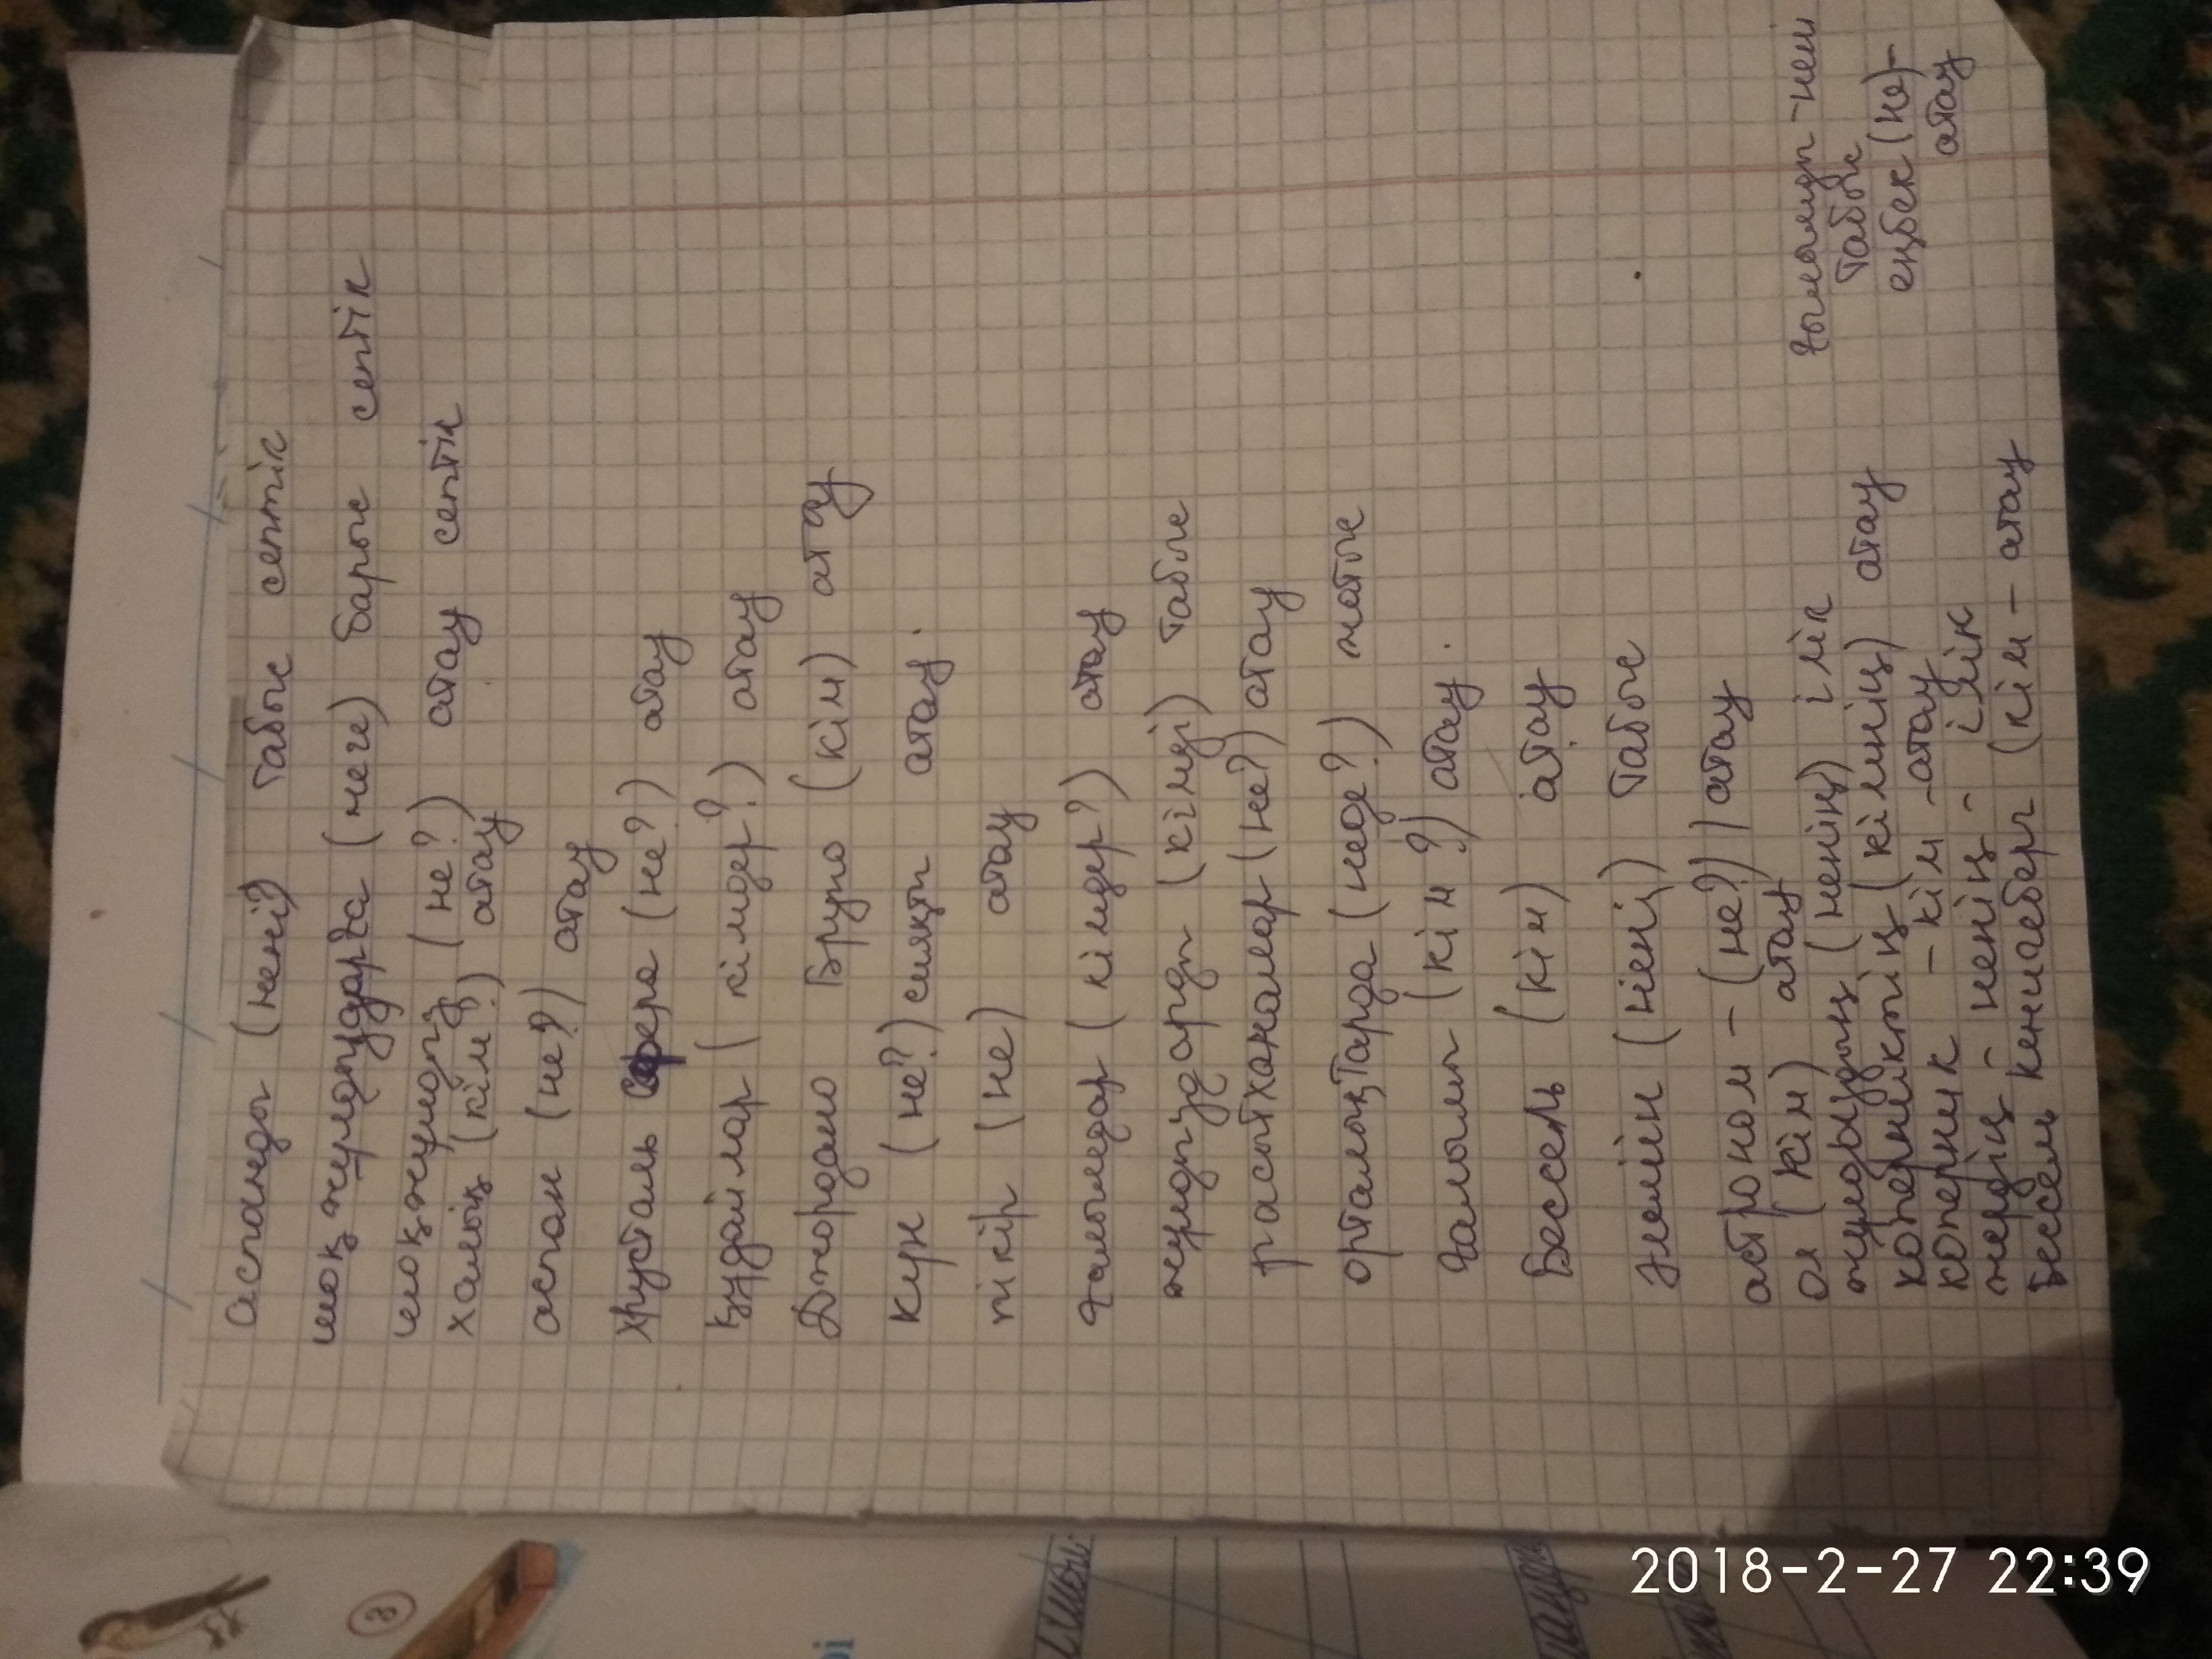 Аспанды (нені?) табыс септік
шоқжұлдыздарға (неге) барыс септік
шоқжұлдыз (не?) атау септік
халық (кім?) атау
аспан (не?) атау
хрусталь сфера (не?) атау
құдайлар (кімдер?) атау
Джордано Бруно (кім) атау
Күн (не?) сияқты атау.
пікір (не) атау
ғалымдар (кімдер?) атау
жұлдыздарды (кімді) табыс
расытханалар (не?) атау
орталықтарда (неде?) жатыс
Ғалым (кім?) атау.
Бессель (кім) атау
Әлемін (нені) табыс
астроном - (не?) атау
ол (кім) атау
жұлдыздың (ненің) ілік
коперниктің (кімнің) атау
коперник - кім - атау
жердің - ненің - ілік
Бессель кенигсберг (кім - атау
ғылымды - нені
табыс
еңбек (не) -
атау
2018-2-27 22:39